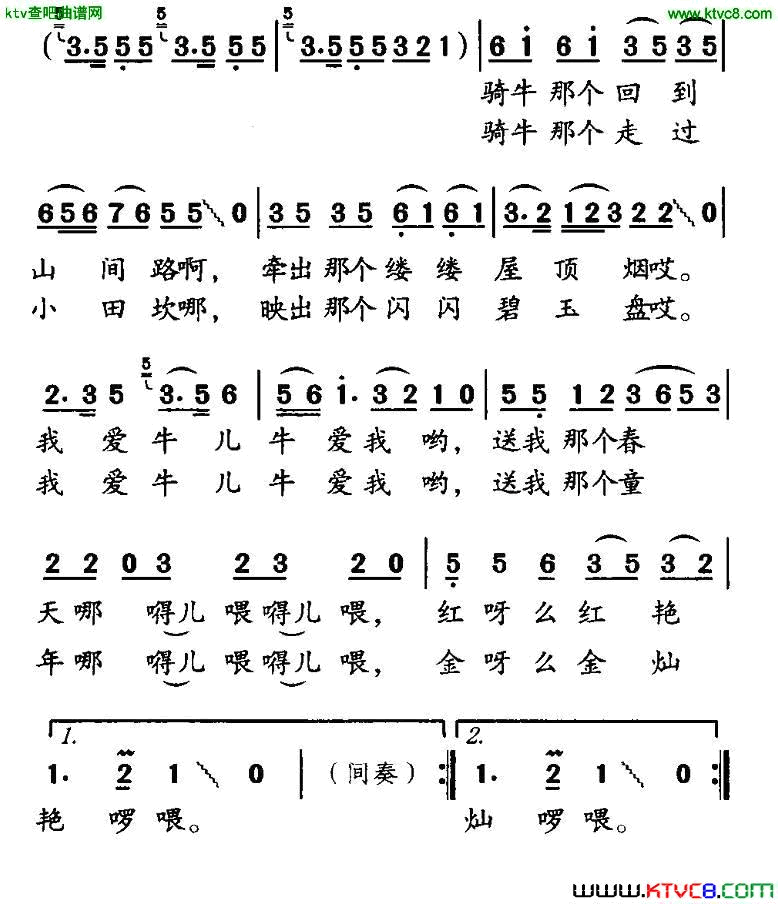 ktv查吧曲谱网
www.ktvc8.com
5 5 5
( 3.5 5 5 3.5 5 5 | 3.5 5 5 3 2 1 ) | 6 i 6 i 3 5 3 5
骑牛 那个 回 到
骑牛 那个 走 过
6 5 6 7 6 5 5 0 | 3 5 3 5 6 1 6 1 | 3. 2 1 2 3 2 2 0
山 间 路啊， 牵出 那个 缕 缕 屋 顶 烟哎。
小 田 坎哪， 映出 那个 闪 闪 碧 玉 盘哎。
5
2. 3 5 3. 5 6 | 5 6 i. 3 2 1 0 | 5 5 1 2 3 6 5 3
我 爱 牛 儿 牛 爱 我 哟， 送我 那个 春
我 爱 牛 儿 牛 爱 我 哟， 送我 那个 童
2 2 0 3 2 3 2 0 | 5 5 6 3 5 3 2
天 哪 嘚儿 喂 嘚儿 喂， 红 呀 么 红 艳
年 哪 嘚儿 喂 嘚儿 喂， 金 呀 么 金 灿
1. 2.
1. 2 1 0 | （间奏） :‖ 1. 2 1 0 :‖
艳 啰 喂。 灿 啰 喂。
www.KTVC8.com